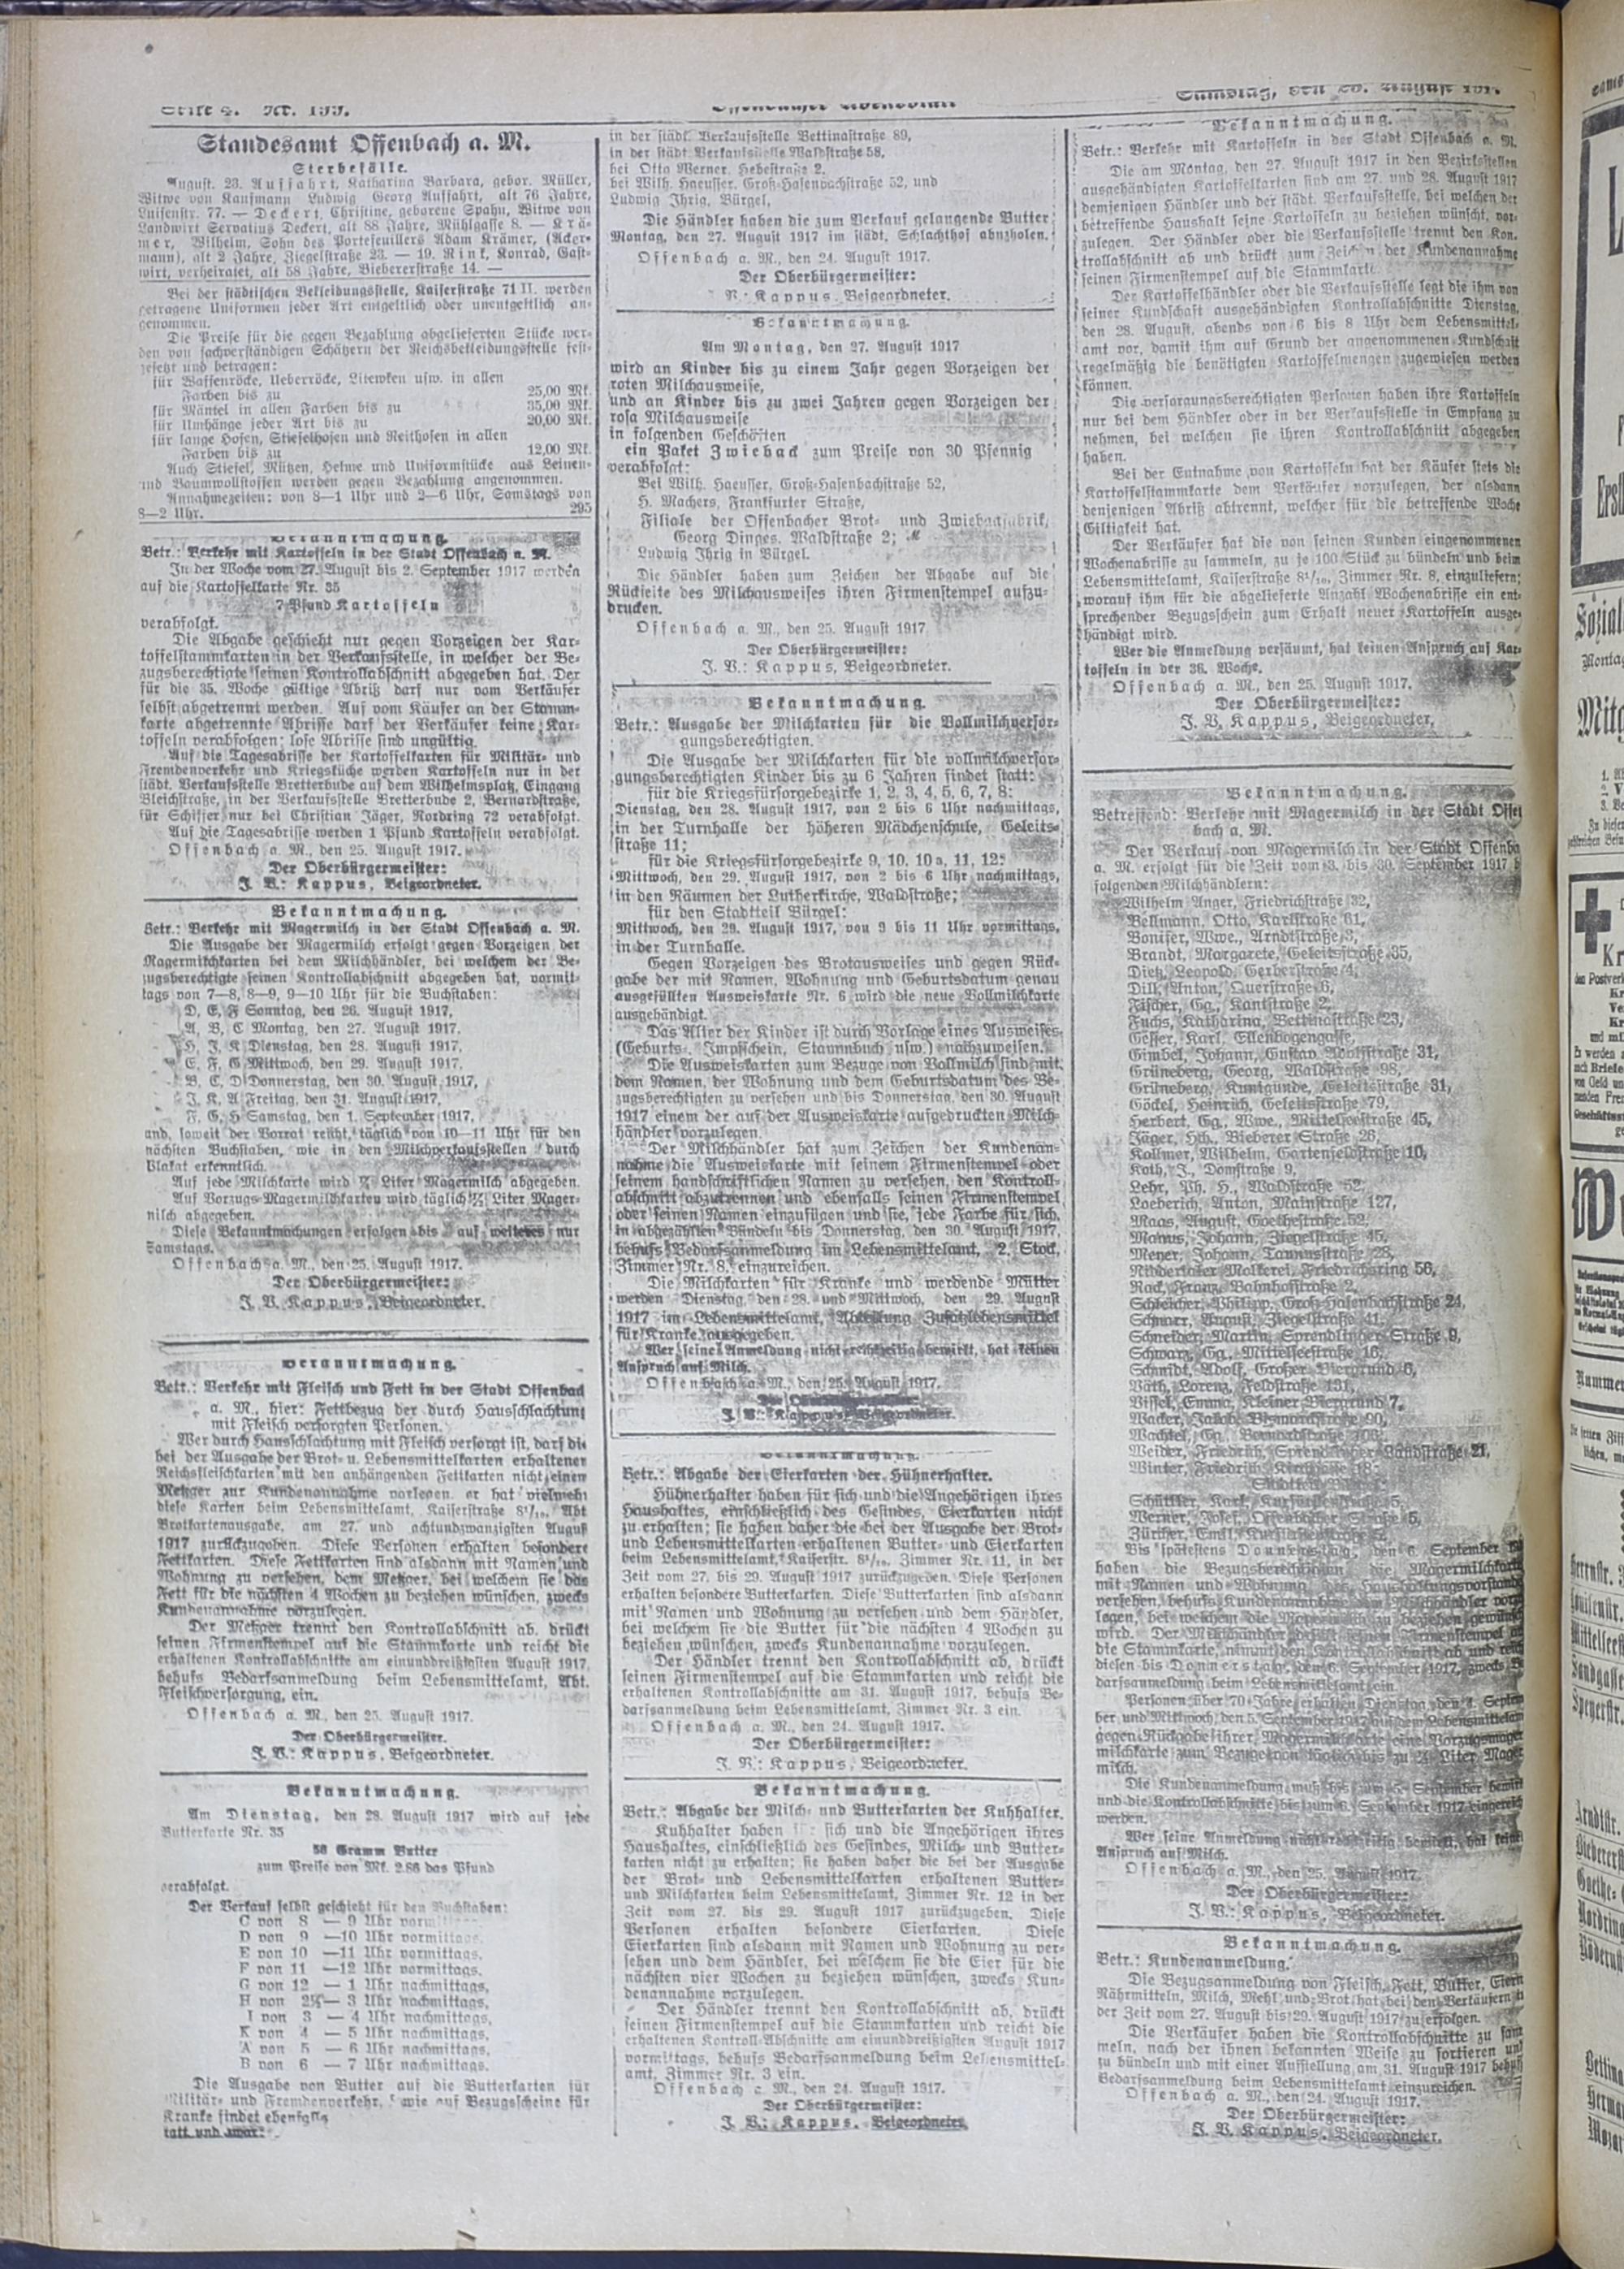 Seite 4. Nr. 199.
Offenbacher Abendblatt
Samstag, den 25. August 1917.
Standesamt Offenbach a. M.
Sterbefälle.
August. 23. Auffahrt, Katharina Barbara, gebor. Müller,
Witwe von Kaufmann Ludwig Georg Auffahrt, alt 76 Jahre,
Luisenstr. 77. — Deckert, Christine, geborene Spahn, Witwe von
Landwirt Servatius Deckert, alt 88 Jahre, Mühlgasse 8. — Krä-
mer, Wilhelm, Sohn des Portefeuillers Adam Krämer, (Acker-
mann), alt 2 Jahre, Ziegelstraße 23. — 19. Rink, Konrad, Gast-
wirt, verheiratet, alt 58 Jahre, Biebererstraße 14. —
Bei der städtischen Bekleidungsstelle, Kaiserstraße 71 II. werden
getragene Uniformen jeder Art entgeltlich oder unentgeltlich an-
genommen.
Die Preise für die gegen Bezahlung abgelieferten Stücke wer-
den von sachverständigen Schätzern der Reichsbekleidungsstelle fest-
gesetzt und betragen:
für Waffenröcke, Ueberröcke, Litewken usw. in allen
Farben bis zu 25,00 Mk.
für Mäntel in allen Farben bis zu 35,00 Mk.
für Umhänge jeder Art bis zu 20,00 Mk.
für lange Hosen, Stiefelhosen und Reithosen in allen
Farben bis zu 12,00 Mk.
Auch Stiefel, Mützen, Helme und Uniformstücke aus Leinen-
und Baumwollstoffen werden gegen Bezahlung angenommen.
Annahmezeiten: von 8—1 Uhr und 2—6 Uhr, Samstags von
8—2 Uhr. 295
Bekanntmachung.
Betr.: Verkehr mit Kartoffeln in der Stadt Offenbach a. M.
In der Woche vom 27. August bis 2. September 1917 werden
auf die Kartoffelkarte Nr. 35
7 Pfund Kartoffeln
verabfolgt.
Die Abgabe geschieht nur gegen Vorzeigen der Kar-
toffelstammkarten in der Verkaufsstelle, in welcher der Be-
zugsberechtigte seinen Kontrollabschnitt abgegeben hat. Der
für die 35. Woche gültige Abriß darf nur vom Verkäufer
selbst abgetrennt werden. Auf vom Käufer an der Stamm-
karte abgetrennte Abrisse darf der Verkäufer keine Kar-
toffeln verabfolgen; lose Abrisse sind ungültig.
Auf die Tagesabrisse der Kartoffelkarten für Militär- und
Fremdenverkehr und Kriegsküche werden Kartoffeln nur in der
städt. Verkaufsstelle Bretterbude auf dem Wilhelmsplatz, Eingang
Bleichstraße, in der Verkaufsstelle Bretterbude 2, Bernardstraße,
für Schiffer nur bei Christian Jäger, Nordring 72 verabfolgt.
Auf die Tagesabrisse werden 1 Pfund Kartoffeln verabfolgt.
Offenbach a. M., den 25. August 1917.
Der Oberbürgermeister:
J. V.: Kappus, Beigeordneter.
Bekanntmachung.
Betr.: Verkehr mit Magermilch in der Stadt Offenbach a. M.
Die Ausgabe der Magermilch erfolgt gegen Vorzeigen der
Magermilchkarten bei dem Milchhändler, bei welchem der Be-
zugsberechtigte seinen Kontrollabschnitt abgegeben hat, vormit-
tags von 7—8, 8—9, 9—10 Uhr für die Buchstaben:
D, E, F Sonntag, den 26. August 1917,
A, B, C Montag, den 27. August 1917,
H, J, K Dienstag, den 28. August 1917,
E, F, G Mittwoch, den 29. August 1917,
B, C, D Donnerstag, den 30. August 1917,
J, K, A Freitag, den 31. August 1917,
F, G, H Samstag, den 1. September 1917,
und, soweit der Vorrat reicht, täglich von 10—11 Uhr für den
nächsten Buchstaben, wie in den Milchverkaufsstellen durch
Plakat erkenntlich.
Auf jede Milchkarte wird Liter Magermilch abgegeben.
Auf Vorzugs-Magermilchkarten wird täglich Liter Mager-
milch abgegeben.
Diese Bekanntmachungen erfolgen bis auf weiteres nur
Samstags.
Offenbach a. M., den 25. August 1917.
Der Oberbürgermeister:
J. V. Kappus, Beigeordneter.
Bekanntmachung.
Betr.: Verkehr mit Fleisch und Fett in der Stadt Offenbach
a. M., hier: Fettbezug der durch Hausschlachtung
mit Fleisch versorgten Personen.
Wer durch Hausschlachtung mit Fleisch versorgt ist, darf die
bei der Ausgabe der Brot- u. Lebensmittelkarten erhaltenen
Reichsfleischkarten mit den anhängenden Fettkarten nicht einem
Metzger zur Kundenannahme vorlegen, er hat vielmehr
diese Karten beim Lebensmittelamt, Kaiserstraße 8¹/₁₀, Abt
Brotkartenausgabe, am 27. und achtundzwanzigsten August
1917 zurückzugeben. Diese Personen erhalten besondere
Fettkarten. Diese Fettkarten sind alsdann mit Namen und
Wohnung zu versehen, dem Metzger, bei welchem sie das
Fett für die nächsten 4 Wochen zu beziehen wünschen, zwecks
Kundenannahme vorzulegen.
Der Metzger trennt den Kontrollabschnitt ab, drückt
seinen Firmenstempel auf die Stammkarte und reicht die
erhaltenen Kontrollabschnitte am einunddreißigsten August 1917,
behufs Bedarfsanmeldung beim Lebensmittelamt, Abt.
Fleischversorgung, ein.
Offenbach a. M., den 25. August 1917.
Der Oberbürgermeister.
J. V.: Kappus, Beigeordneter.
Bekanntmachung.
Am Dienstag, den 28. August 1917 wird auf jede
Butterkarte Nr. 35
50 Gramm Butter
zum Preise von Mk. 2.86 das Pfund
verabfolgt.
Der Verkauf selbst geschieht für den Buchstaben:
C von 8 — 9 Uhr vormittags.
D von 9 —10 Uhr vormittags.
E von 10 —11 Uhr vormittags.
F von 11 —12 Uhr vormittags.
G von 12 — 1 Uhr nachmittags,
H von 2½— 3 Uhr nachmittags,
I von 3 — 4 Uhr nachmittags,
K von 4 — 5 Uhr nachmittags.
A von 5 — 6 Uhr nachmittags,
B von 6 — 7 Uhr nachmittags.
Die Ausgabe von Butter auf die Butterkarten für
Militär- und Fremdenverkehr, wie auf Bezugsscheine für
Kranke findet ebenfalls
statt und zwar:
in der städt. Verkaufsstelle Bettinastraße 89,
in der städt. Verkaufsstelle Waldstraße 58,
bei Otto Werner, Hebestraße 2,
bei Wilh. Haeusser, Groß-Hasenbachstraße 52, und
Ludwig Ihrig, Bürgel,
Die Händler haben die zum Verkauf gelangende Butter
Montag, den 27. August 1917 im städt. Schlachthof abzuholen.
Offenbach a. M., den 24. August 1917.
Der Oberbürgermeister:
V.: Kappus, Beigeordneter.
Bekanntmachung.
Am Montag, den 27. August 1917
wird an Kinder bis zu einem Jahr gegen Vorzeigen der
roten Milchausweise,
und an Kinder bis zu zwei Jahren gegen Vorzeigen der
rosa Milchausweise
in folgenden Geschäften
ein Paket Zwieback zum Preise von 30 Pfennig
verabfolgt:
Bei Wilh. Haeusser, Groß-Hasenbachstraße 52,
H. Machers, Frankfurter Straße,
Filiale der Offenbacher Brot- und Zwiebackfabrik,
Georg Dinges, Waldstraße 2;
Ludwig Ihrig in Bürgel.
Die Händler haben zum Zeichen der Abgabe auf die
Rückseite des Milchausweises ihren Firmenstempel aufzu-
drucken.
Offenbach a. M., den 25. August 1917
Der Oberbürgermeister:
J. V.: Kappus, Beigeordneter.
Bekanntmachung.
Betr.: Ausgabe der Milchkarten für die Vollmilchversor-
gungsberechtigten.
Die Ausgabe der Milchkarten für die vollmilchversor-
gungsberechtigten Kinder bis zu 6 Jahren findet statt:
für die Kriegsfürsorgebezirke 1, 2, 3, 4, 5, 6, 7, 8:
Dienstag, den 28. August 1917, von 2 bis 6 Uhr nachmittags,
in der Turnhalle der höheren Mädchenschule, Geleits-
straße 11;
für die Kriegsfürsorgebezirke 9, 10, 10a, 11, 12:
Mittwoch, den 29. August 1917, von 2 bis 6 Uhr nachmittags,
in den Räumen der Lutherkirche, Waldstraße;
für den Stadtteil Bürgel:
Mittwoch, den 29. August 1917, von 9 bis 11 Uhr vormittags,
in der Turnhalle.
Gegen Vorzeigen des Brotausweises und gegen Rück-
gabe der mit Namen, Wohnung und Geburtsdatum genau
ausgefüllten Ausweiskarte Nr. 6 wird die neue Vollmilchkarte
ausgehändigt.
Das Alter der Kinder ist durch Vorlage eines Ausweises
(Geburts-, Impfschein, Stammbuch usw.) nachzuweisen.
Die Ausweiskarten zum Bezuge von Vollmilch sind mit
dem Namen, der Wohnung und dem Geburtsdatum des Be-
zugsberechtigten zu versehen und bis Donnerstag, den 30. August
1917 einem der auf der Ausweiskarte aufgedruckten Milch-
händler vorzulegen.
Der Milchhändler hat zum Zeichen der Kundenan-
nahme die Ausweiskarte mit seinem Firmenstempel oder
seinem handschriftlichen Namen zu versehen, den Kontroll-
abschnitt abzutrennen und ebenfalls seinen Firmenstempel
oder seinen Namen einzufügen und sie, jede Farbe für sich,
in abgezählten Bündeln bis Donnerstag, den 30. August 1917,
behufs Bedarfsanmeldung im Lebensmittelamt, 2. Stock,
Zimmer Nr. 8, einzureichen.
Die Milchkarten für Kranke und werdende Mütter
werden Dienstag, den 28. und Mittwoch, den 29. August
1917 im Lebensmittelamt, Abteilung Zusatzlebensmittel
für Kranke ausgegeben.
Wer seine Anmeldung nicht rechtzeitig bewirkt, hat keinen
Anspruch auf Milch.
Offenbach a. M., den 25. August 1917.
Der Oberbürgermeister:
J. V.: Kappus, Beigeordneter.
Bekanntmachung.
Betr.: Abgabe der Eierkarten der Hühnerhalter.
Hühnerhalter haben für sich und die Angehörigen ihres
Haushaltes, einschließlich des Gesindes, Eierkarten nicht
zu erhalten; sie haben daher die bei der Ausgabe der Brot-
und Lebensmittelkarten erhaltenen Butter- und Eierkarten
beim Lebensmittelamt, Kaiserstr. 8¹/₁₀, Zimmer Nr. 11, in der
Zeit vom 27. bis 29. August 1917 zurückzugeben. Diese Personen
erhalten besondere Butterkarten. Diese Butterkarten sind alsdann
mit Namen und Wohnung zu versehen und dem Händler,
bei welchem sie die Butter für die nächsten 4 Wochen zu
beziehen wünschen, zwecks Kundenannahme vorzulegen.
Der Händler trennt den Kontrollabschnitt ab, drückt
seinen Firmenstempel auf die Stammkarten und reicht die
erhaltenen Kontrollabschnitte am 31. August 1917, behufs Be-
darfsanmeldung beim Lebensmittelamt, Zimmer Nr. 3 ein.
Offenbach a. M., den 24. August 1917.
Der Oberbürgermeister:
J. V.: Kappus, Beigeordneter.
Bekanntmachung.
Betr.: Abgabe der Milch- und Butterkarten der Kuhhalter.
Kuhhalter haben für sich und die Angehörigen ihres
Haushaltes, einschließlich des Gesindes, Milch- und Butter-
karten nicht zu erhalten; sie haben daher die bei der Ausgabe
der Brot- und Lebensmittelkarten erhaltenen Butter-
und Milchkarten beim Lebensmittelamt, Zimmer Nr. 12 in der
Zeit vom 27. bis 29. August 1917 zurückzugeben. Diese
Personen erhalten besondere Eierkarten. Diese
Eierkarten sind alsdann mit Namen und Wohnung zu ver-
sehen und dem Händler, bei welchem sie die Eier für die
nächsten vier Wochen zu beziehen wünschen, zwecks Kun-
denannahme vorzulegen.
Der Händler trennt den Kontrollabschnitt ab, drückt
seinen Firmenstempel auf die Stammkarten und reicht die
erhaltenen Kontroll-Abschnitte am einunddreißigsten August 1917
vormittags, behufs Bedarfsanmeldung beim Lebensmittel-
amt, Zimmer Nr. 3 ein.
Offenbach a. M., den 24. August 1917.
Der Oberbürgermeister:
J. V.: Kappus, Beigeordneter.
Bekanntmachung.
Betr.: Verkehr mit Kartoffeln in der Stadt Offenbach a. M.
Die am Montag, den 27. August 1917 in den Bezirksstellen
ausgehändigten Kartoffelkarten sind am 27. und 28. August 1917
demjenigen Händler und der städt. Verkaufsstelle, bei welchen der
betreffende Haushalt seine Kartoffeln zu beziehen wünscht, vor-
zulegen. Der Händler oder die Verkaufsstelle trennt den Kon-
trollabschnitt ab und drückt zum Zeichen der Kundenannahme
seinen Firmenstempel auf die Stammkarte.
Der Kartoffelhändler oder die Verkaufsstelle legt die ihm von
seiner Kundschaft ausgehändigten Kontrollabschnitte Dienstag,
den 28. August, abends von 6 bis 8 Uhr dem Lebensmittel-
amt vor, damit ihm auf Grund der angenommenen Kundschaft
regelmäßig die benötigten Kartoffelmengen zugewiesen werden
können.
Die versorgungsberechtigten Personen haben ihre Kartoffeln
nur bei dem Händler oder in der Verkaufsstelle in Empfang zu
nehmen, bei welchen sie ihren Kontrollabschnitt abgegeben
haben.
Bei der Entnahme von Kartoffeln hat der Käufer stets die
Kartoffelstammkarte dem Verkäufer vorzulegen, der alsdann
denjenigen Abriß abtrennt, welcher für die betreffende Woche
Giltigkeit hat.
Der Verkäufer hat die von seinen Kunden eingenommenen
Wochenabrisse zu sammeln, zu je 100 Stück zu bündeln und beim
Lebensmittelamt, Kaiserstraße 8¹/₁₀, Zimmer Nr. 8, einzuliefern;
worauf ihm für die abgelieferte Anzahl Wochenabrisse ein ent-
sprechender Bezugsschein zum Erhalt neuer Kartoffeln ausge-
händigt wird.
Wer die Anmeldung versäumt, hat keinen Anspruch auf Kar-
toffeln in der 36. Woche.
Offenbach a. M., den 25. August 1917.
Der Oberbürgermeister:
J. V. Kappus, Beigeordneter.
Bekanntmachung.
Betreffend: Verkehr mit Magermilch in der Stadt Offen
bach a. M.
Der Verkauf von Magermilch in der Stadt Offenba
a. M. erfolgt für die Zeit vom 3. bis 30. September 1917 b
folgenden Milchhändlern:
Wilhelm Anger, Friedrichstraße 32,
Bellmann, Otto, Karlstraße 61,
Bonifer, Wwe., Arndtstraße 3,
Brandt, Margarete, Geleitsstraße 35,
Dietz, Leopold, Gerberstraße 4,
Dill, Anton, Querstraße 6,
Fischer, Gg., Kantstraße 2,
Fuchs, Katharina, Bettinastraße 23,
Geffer, Karl, Ellenbogengasse,
Gimbel, Johann, Gustav Adolfstraße 31,
Grüneberg, Georg, Waldstraße 98,
Grüneberg, Kunigunde, Geleitsstraße 31,
Göckel, Heinrich, Geleitsstraße 79,
Herbert, Gg., Wwe., Mittelseestraße 45,
Jäger, Hch., Bieberer Straße 26,
Kollmer, Wilhelm, Gartenfeldstraße 10,
Koth, J., Domstraße 9,
Lehr, Ph. H., Waldstraße 52,
Loeberich, Anton, Mainstraße 127,
Maas, August, Goethestraße 52,
Manus, Johann, Ziegelstraße 45,
Meyer, Johann, Taunusstraße 28,
Niddertaler Molkerei, Friedrichsring 56,
Rack, Franz, Bahnhofstraße 2,
Schleicher, Philipp, Groß-Hasenbachstraße 24,
Schnarr, August, Ziegelstraße 41,
Schneider, Martin, Sprendlinger Straße 9,
Schwarz, Gg., Mittelseestraße 16,
Schmidt, Adolf, Großer Biergrund 6,
Väth, Lorenz, Feldstraße 131,
Vissel, Emma, Kleiner Biergrund 7,
Wacker, Jakob, Bismarckstraße 90,
Wachtel, Gg., Bernardstraße
Weider, Friedrich, Sprendlinger Landstraße 21,
Winter, Friedrich, 18.
Stadtteil Bürgel:
Schüttler, Karl, Kurfürstenstraße 5,
Werner, Josef, Offenbacher Straße 5,
Zürcher, Emil,
Bis spätestens Donnerstag, den 6. September
haben die Bezugsberechtigten die Magermilchkarte
mit Namen und Wohnung des Haushaltungsvorstande
versehen, behufs Kundenannahme dem Milchhändler vorz
legen, bei welchem die Magermilch zu beziehen gewünsch
wird. Der Milchhändler drückt seinen Firmenstempel
die Stammkarte, nimmt den Kontrollabschnitt ab und reich
diesen bis Donnerstag, den 6. September 1917, zwecks B
darfsanmeldung beim Lebensmittelamt ein.
Personen über 70 Jahre erhalten Dienstag, den 4. Septem
ber und Mittwoch, den 5. September 1917 auf dem Lebensmittelam
gegen Rückgabe ihrer Magermilchkarte eine Vorzugsmager
milchkarte zum Bezuge von täglich bis zu Liter Mager
milch.
Die Kundenanmeldung muß bis zum 5. September bewirk
und die Kontrollabschnitte bis zum 6. September 1917 eingereich
werden.
Wer seine Anmeldung nicht rechtzeitig bewirkt, hat keine
Anspruch auf Milch.
Offenbach a. M., den 25. August 1917.
Der Oberbürgermeister:
J. V.: Kappus, Beigeordneter.
Bekanntmachung.
Betr.: Kundenanmeldung.
Die Bezugsanmeldung von Fleisch, Fett, Butter, Eiern
Nährmitteln, Milch, Mehl und Brot hat bei den Verkäufern
der Zeit vom 27. August bis 29. August 1917 zu erfolgen.
Die Verkäufer haben die Kontrollabschnitte zu sam
meln, nach der ihnen bekannten Weise zu sortieren und
zu bündeln und mit einer Aufstellung am 31. August 1917 behufs
Bedarfsanmeldung beim Lebensmittelamt einzureichen.
Offenbach a. M., den 24. August 1917.
Der Oberbürgermeister:
J. V. Kappus, Beigeordneter.